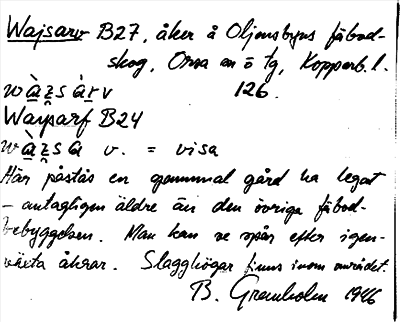 Wajsarv B27, åker å Oljonsbyns fäbod-
skog, Orsa sn ö tg, Kopparb. l.
wàzsàrv 126.
Waysarf B24
wàzsa v. = visa
Här påstås en gammal gård ha legat
– antagligen äldre än den övriga fäbod-
bebyggelsen. Man kan se spår efter igen-
växta åkrar. Slagghögar finns inom området.
B. Gremholm 1946